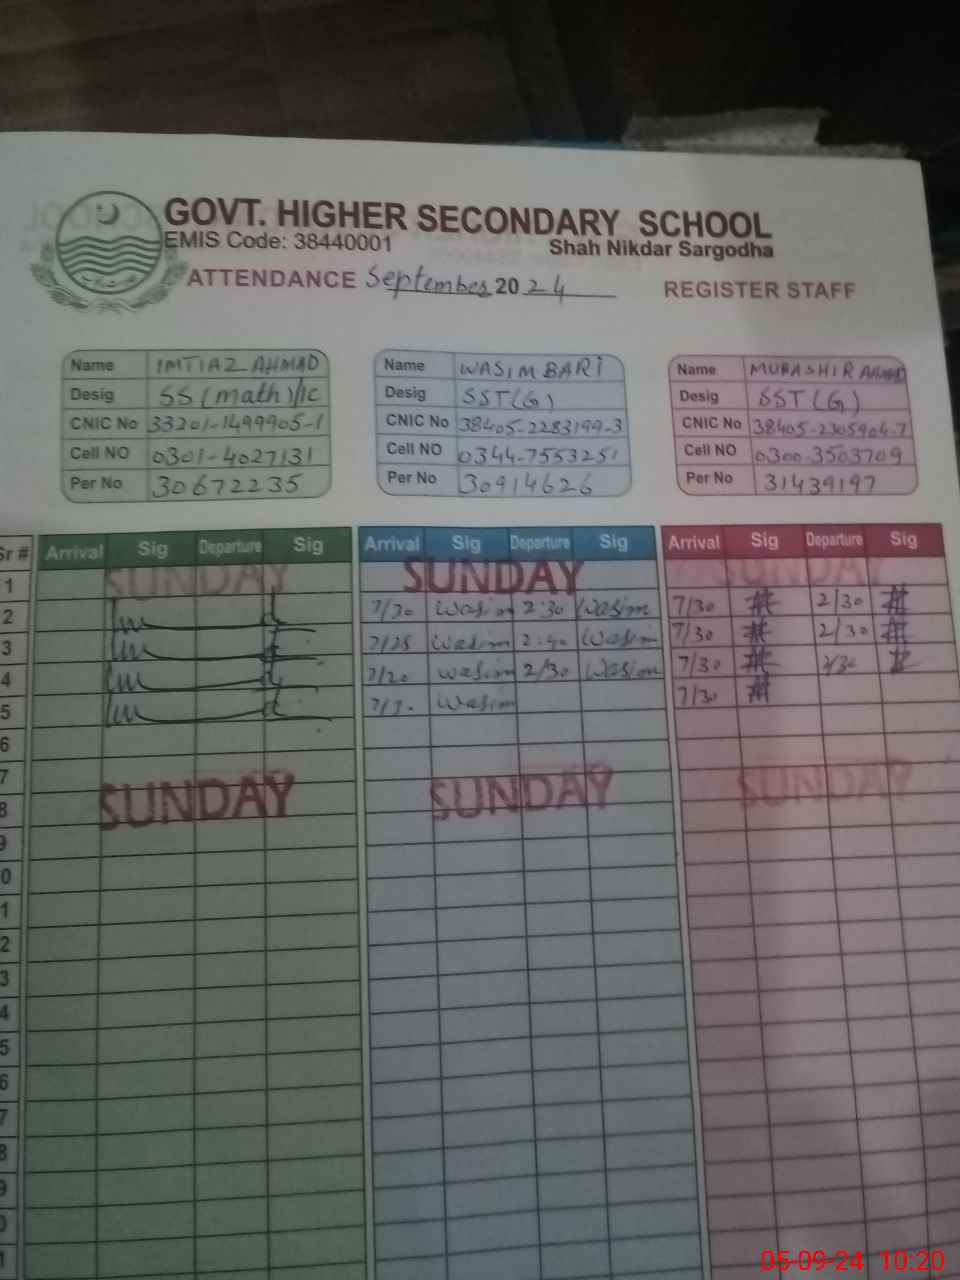 GOVT. HIGHER SECONDARY SCHOOL
EMIS Code: 38440001 Shah Nikdar Sargodha
ATTENDANCE September 2024 REGISTER STAFF
Name IMTIAZ AHMAD Name WASIM BARI Name MUBASHIR AHMAD
Desig SS (math)/IC Desig SST(G) Desig SST (G)
CNIC No 33201-1499905-1 CNIC No 38405-2283199-3 CNIC No 38405-2305904-7
Cell NO 0301-4027131 Cell NO 0344-7553251 Cell NO 0300-3503709
Per No 30672235 Per No 30914626 Per No 31439197
Sr # Arrival Sig Departure Sig Arrival Sig Departure Sig Arrival Sig Departure Sig
1 SUNDAY SUNDAY SUNDAY
2 7/30 Wasim 2:30 Wasim 7/30 2/30
3 7/25 Wasim 2:40 Wasim 7/30 2/30
4 7/20 Wasim 2/30 Wasim 7/30 2/30
5 Wasim 7/30
6
7
8 SUNDAY SUNDAY SUNDAY
9
0
1
2
3
4
5
6
7
8
9
0
1
05-09-24 10:20